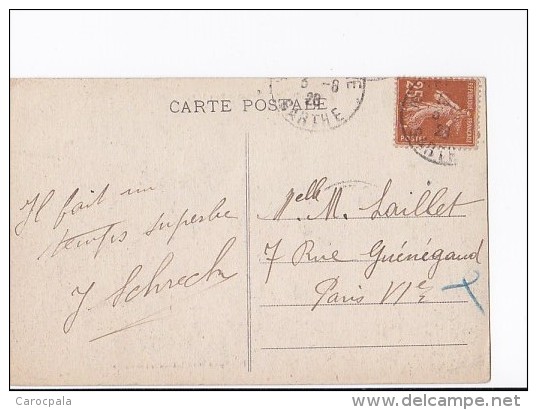 CARTE POSTALE
5 -8
28
SARTHE
25
REPUBLIQUE FRANÇAISE
POSTES
Il fait un
temps superbe
J. Schreck
Melle M. Laillet
7 Rue Guénégaud
Paris VIe
Carocpala
delcampe.net